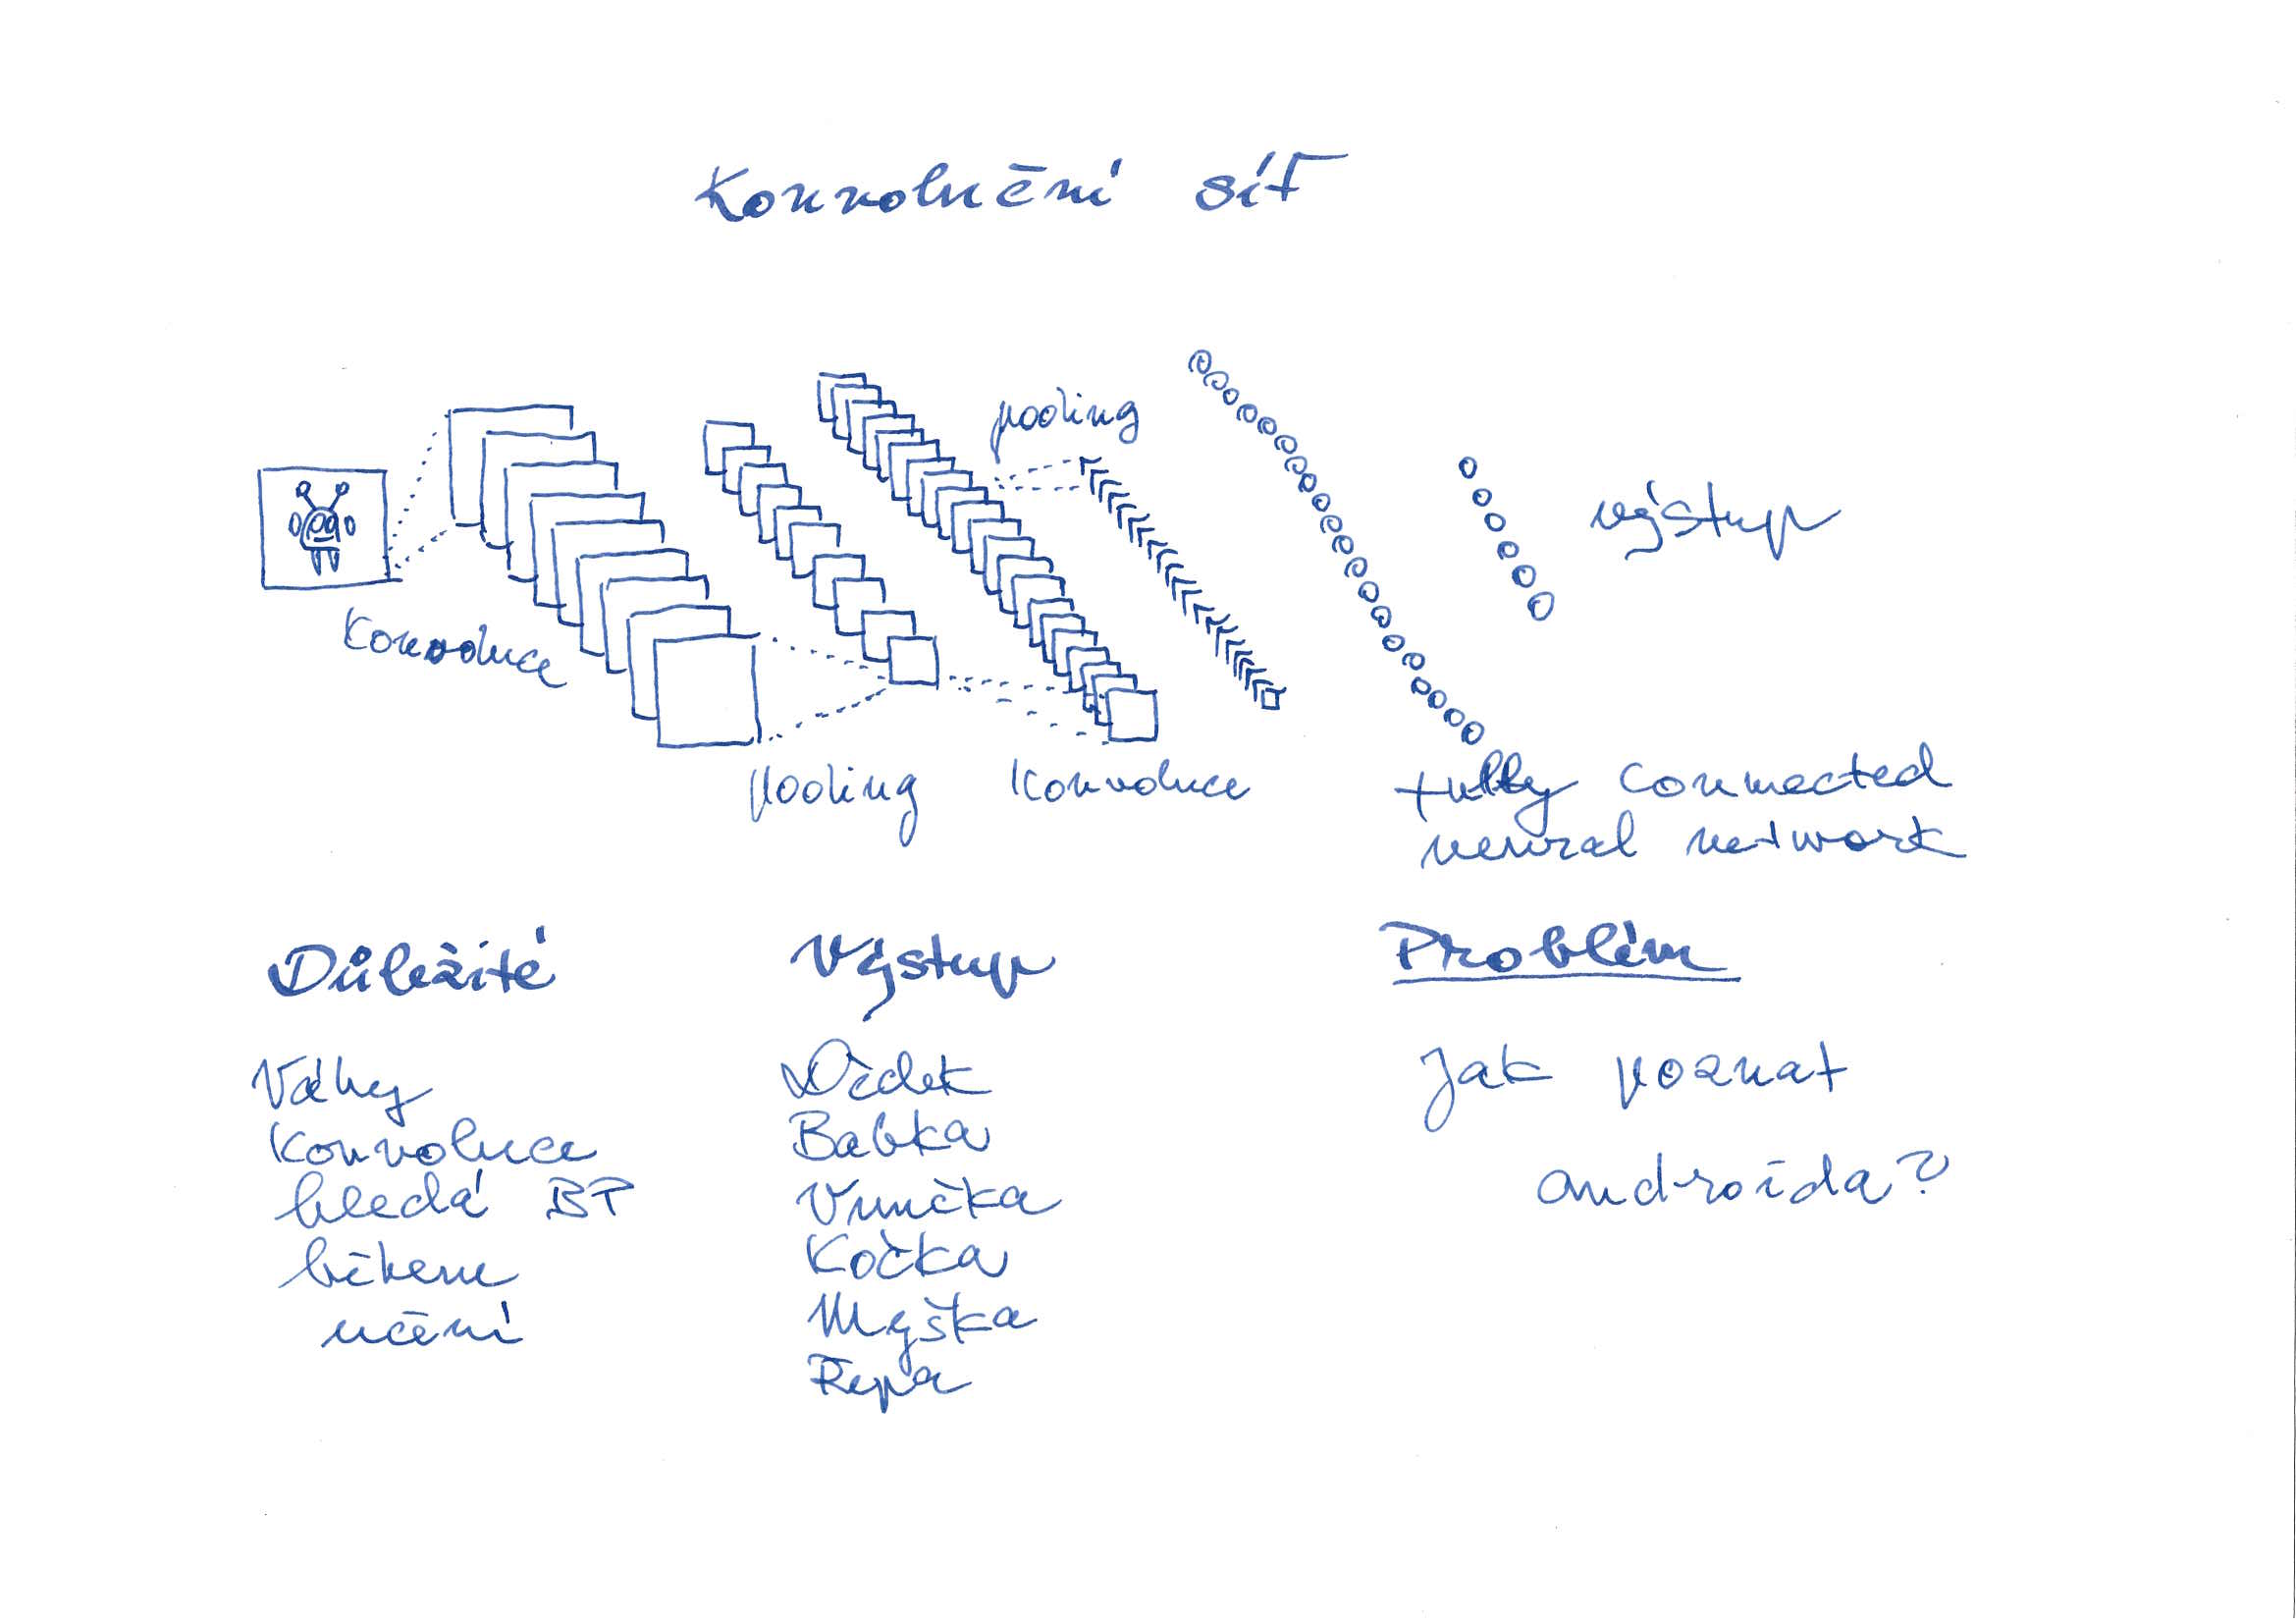 Konvoluční síť
pooling
výstup
Konvoluce
pooling
Konvoluce
fully connected
neural network
Důležité
Váhy
Konvoluce
hledá BP
během
učení
Výstup
Dědek
Babka
Vnučka
Kočka
Myška
Řepa
Problém
Jak poznat
androida?